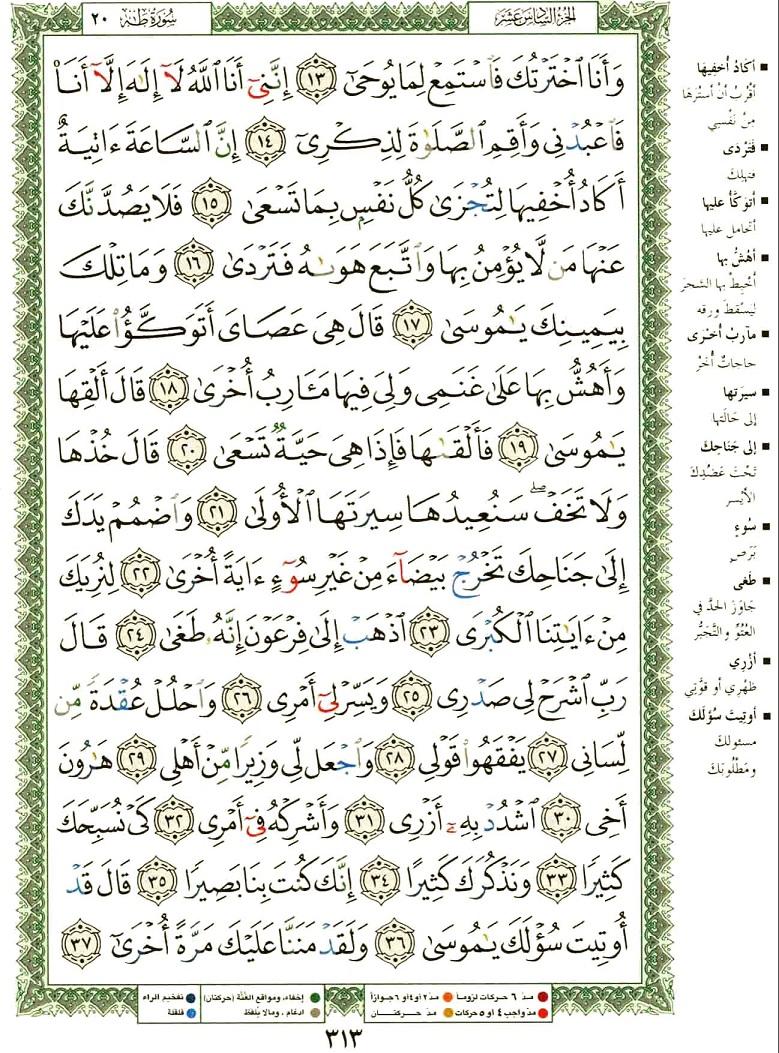 الجزء السادس عشر
سورة طه ٢٠
وَأَنَا ٱخْتَرْتُكَ فَٱسْتَمِعْ لِمَا يُوحَىٰٓ ١٣ إِنَّنِىٓ أَنَا ٱللَّهُ لَآ إِلَٰهَ إِلَّآ أَنَا۠
فَٱعْبُدْنِى وَأَقِمِ ٱلصَّلَوٰةَ لِذِكْرِىٓ ١٤ إِنَّ ٱلسَّاعَةَ ءَاتِيَةٌ
أَكَادُ أُخْفِيهَا لِتُجْزَىٰ كُلُّ نَفْسٍۭ بِمَا تَسْعَىٰ ١٥ فَلَا يَصُدَّنَّكَ
عَنْهَا مَن لَّا يُؤْمِنُ بِهَا وَٱتَّبَعَ هَوَىٰهُ فَتَرْدَىٰ ١٦ وَمَا تِلْكَ
بِيَمِينِكَ يَٰمُوسَىٰ ١٧ قَالَ هِىَ عَصَاىَ أَتَوَكَّؤُا۟ عَلَيْهَا
وَأَهُشُّ بِهَا عَلَىٰ غَنَمِى وَلِىَ فِيهَا مَـَٔارِبُ أُخْرَىٰ ١٨ قَالَ أَلْقِهَا
يَٰمُوسَىٰ ١٩ فَأَلْقَىٰهَا فَإِذَا هِىَ حَيَّةٌ تَسْعَىٰ ٢٠ قَالَ خُذْهَا
وَلَا تَخَفْ ۖ سَنُعِيدُهَا سِيرَتَهَا ٱلْأُولَىٰ ٢١ وَٱضْمُمْ يَدَكَ
إِلَىٰ جَنَاحِكَ تَخْرُجْ بَيْضَآءَ مِنْ غَيْرِ سُوٓءٍ ءَايَةً أُخْرَىٰ ٢٢ لِنُرِيَكَ
مِنْ ءَايَٰتِنَا ٱلْكُبْرَى ٢٣ ٱذْهَبْ إِلَىٰ فِرْعَوْنَ إِنَّهُۥ طَغَىٰ ٢٤ قَالَ
رَبِّ ٱشْرَحْ لِى صَدْرِى ٢٥ وَيَسِّرْ لِىٓ أَمْرِى ٢٦ وَٱحْلُلْ عُقْدَةً مِّن
لِّسَانِى ٢٧ يَفْقَهُوا۟ قَوْلِى ٢٨ وَٱجْعَل لِّى وَزِيرًا مِّنْ أَهْلِى ٢٩ هَٰرُونَ
أَخِى ٣٠ ٱشْدُدْ بِهِۦٓ أَزْرِى ٣١ وَأَشْرِكْهُ فِىٓ أَمْرِى ٣٢ كَىْ نُسَبِّحَكَ
كَثِيرًا ٣٣ وَنَذْكُرَكَ كَثِيرًا ٣٤ إِنَّكَ كُنتَ بِنَا بَصِيرًا ٣٥ قَالَ قَدْ
أُوتِيتَ سُؤْلَكَ يَٰمُوسَىٰ ٣٦ وَلَقَدْ مَنَنَّا عَلَيْكَ مَرَّةً أُخْرَىٰٓ ٣٧
أكادُ أُخفِيهَا
أقْرُبُ أنْ أسْتُرَهَا
مِنْ نَفْسِي
فَتَرْدَى
فتهلِكَ
أتوَكَّأُ عليها
أتحامل عليها
أهُشُّ بها
أُخْبِطُ بها الشجرَ
ليَسْقطَ ورقه
مآربُ أُخرَى
حاجاتٌ أُخَرُ
سيرَتها
إلى حَالَتِها
إلى جَنَاحِكَ
تَحْتَ عَضُدِكَ
الأيْسرِ
سُوءٍ
بَرَصٍ
طَغَى
جَاوَزَ الحدَّ في
العُتُوِّ و التَّجَبُّر
أزْرِي
ظهْرِي أو قُوَّتِي
أوتِيتَ سُؤلَكَ
مسئولكَ
ومَطْلُوبَكَ
مدّ ٦ حركات لزوماً
مدّ ٢ أو ٤ أو ٦ جوازاً
إخفاء، ومواقع الغنّة (حركتان)
تفخيم الراء
مدّ واجب ٤ أو ٥ حركات
مدّ حركتــــان
ادغام، وما لا يُلفظ
قلقلة
٣١٣